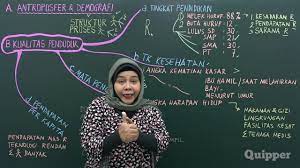 A. ANTROPOSFER & DEMOGRAFI
STRUKTUR
PROSES
B. KUALITAS PENDUDUK
a. TINGKAT PENDIDIKAN
MELEK HURUF 88%
BUTA HURUF 12%
LULUS SD
SMP
SMA
PT
KESADARAN R.
PENDAPATAN R.
SARANA R.
b. TK KESEHATAN
ANGKA KEMATIAN KASAR
IBU HAMIL / SAAT MELAHIRKAN
BAYI
ANGKA HARAPAN HIDUP
MAKANAN & GIZI
LINGKUNGAN
FASILITAS KESHT
TENAGA MEDIS
c. MATA
d. PENDAPATAN
PER CAPITA
TEKNOLOGI RENDAH
BANYAK
Quipper